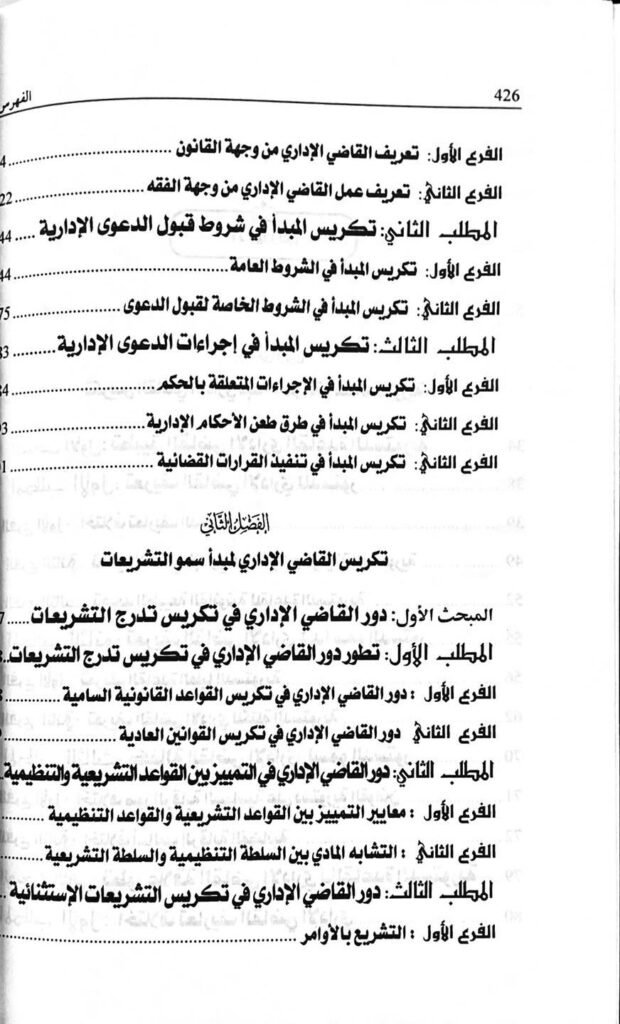 426 الفهرس
الفرع الأول: تعريف القاضي الإداري من وجهة القانون ........ 4
الفرع الثاني: تعريف عمل القاضي الإداري من وجهة الفقه ........ 22
المطلب الثاني: تكريس المبدأ في شروط قبول الدعوى الإدارية ..... 44
الفرع الأول: تكريس المبدأ في الشروط العامة ........ 44
الفرع الثاني: تكريس المبدأ في الشروط الخاصة لقبول الدعوى ........ 75
المطلب الثالث: تكريس المبدأ في إجراءات الدعوى الإدارية ........ 83
الفرع الأول: تكريس المبدأ في الإجراءات المتعلقة بالحكم ........ 84
الفرع الثاني: تكريس المبدأ في طرق طعن الأحكام الإدارية ........ 93
الفرع الثاني: تكريس المبدأ في تنفيذ القرارات القضائية ........ 01
الفصل الثاني
تكريس القاضي الإداري لمبدأ سمو التشريعات
المبحث الأول: دور القاضي الإداري في تكريس تدرج التشريعات ..... 7
المطلب الأول: تطور دور القاضي الإداري في تكريس تدرج التشريعات ..
الفرع الأول : دور القاضي الإداري في تكريس القواعد القانونية السامية ........
الفرع الثاني دور القاضي الإداري في تكريس القوانين العادية ........
المطلب الثاني: دور القاضي الإداري في التمييز بين القواعد التشريعية والتنظيمية ..
الفرع الأول : معايير التمييز بين القواعد التشريعية والقواعد التنظيمية ........
الفرع الثاني : التشابه المادي بين السلطة التنظيمية والسلطة التشريعية ........
المطلب الثالث: دور القاضي الإداري في تكريس التشريعات الإستثنائية ........
الفرع الأول : التشريع بالأوامر ........